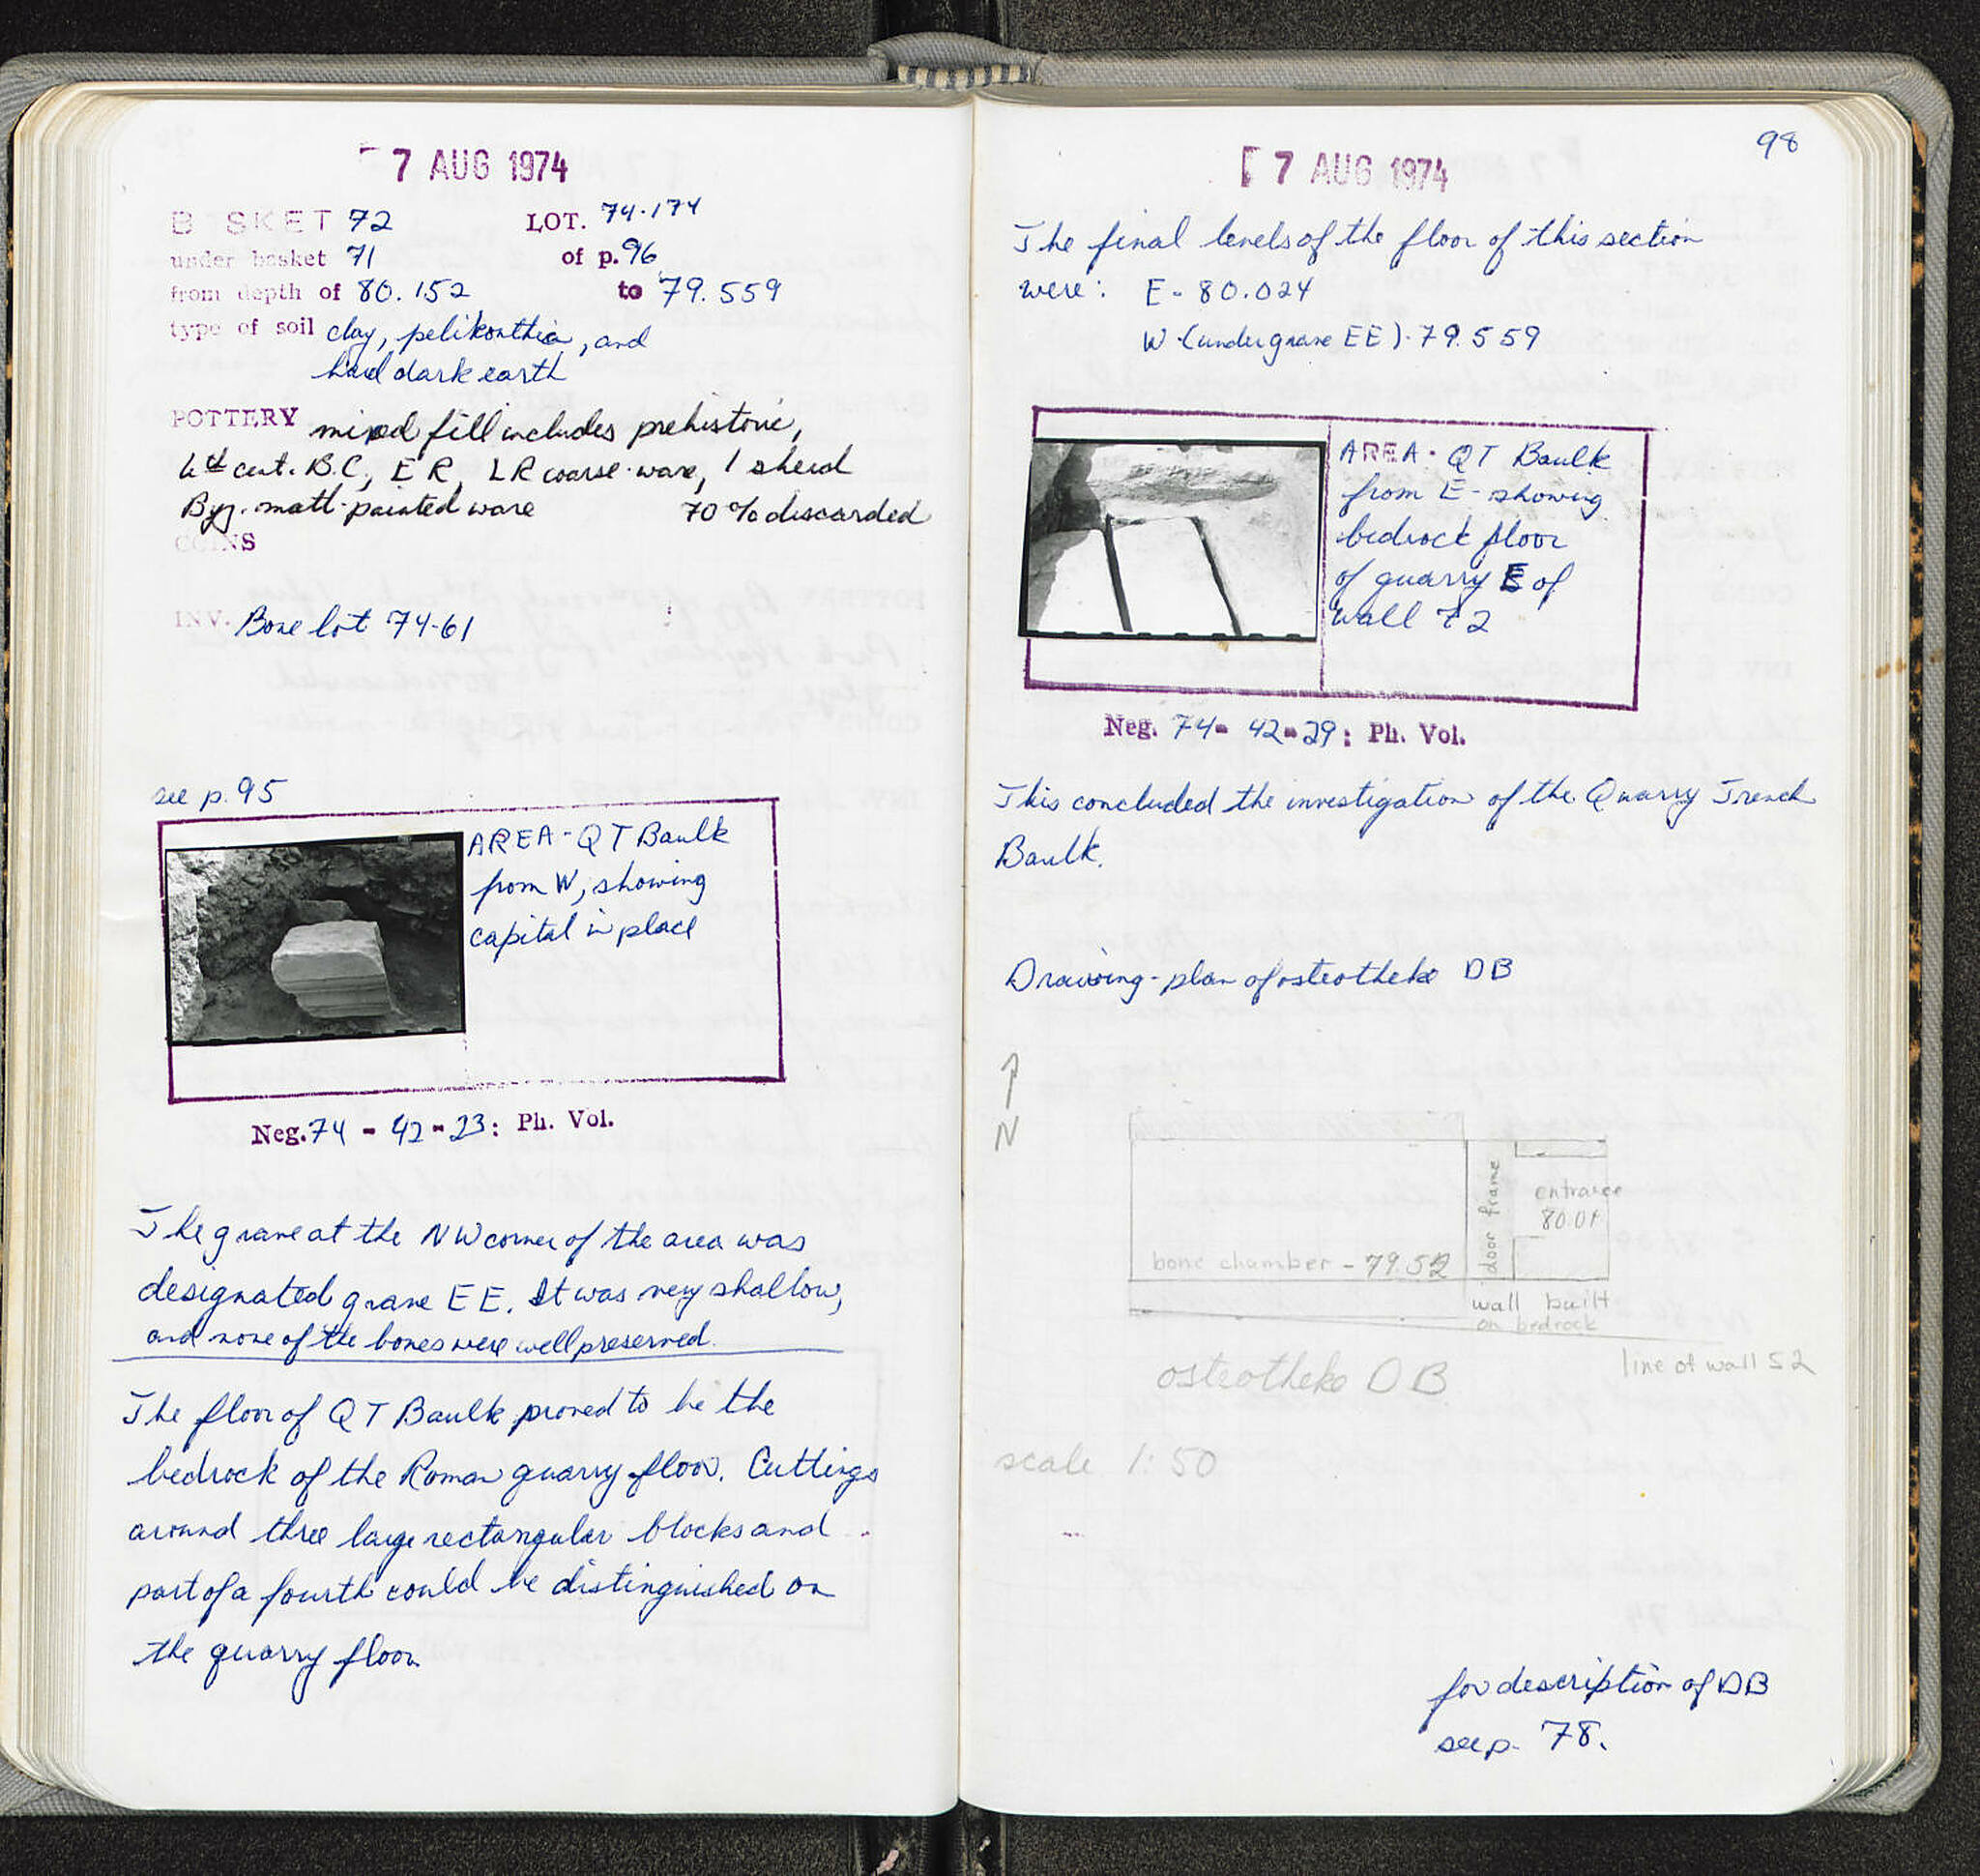 7 AUG 1974
BASKET 72 LOT. 74-174
under basket 71 of p. 96
from depth of 80.152 to 79.559
type of soil clay, pelikonthia, and
hard dark earth
POTTERY mixed fill includes prehistoric,
4th cent. B.C., ER, LR coarse-ware, 1 sherd
Byz. matt-painted ware 70% discarded
COINS
INV. Bone lot 74-61
see p. 95
AREA - QT Baulk
from W, showing
capital in place
Neg. 74 - 42 - 23: Ph. Vol.
The grave at the NW corner of the area was
designated grave EE. It was very shallow,
and none of the bones were well preserved.
The floor of QT Baulk proved to be the
bedrock of the Roman quarry floor. Cuttings
around three large rectangular blocks and
part of a fourth could be distinguished on
the quarry floor.
98
7 AUG 1974
The final levels of the floor of this section
were: E - 80.024
W - (under grave EE) - 79.559
AREA - QT Baulk
from E - showing
bedrock floor
of quarry E of
wall 72
Neg. 74 - 42 - 29: Ph. Vol.
This concluded the investigation of the Quarry Trench
Baulk.
Drawing - plan of osteotheke DB
N
door frame
entrance
80.01
bone chamber - 79.52
wall built
on bedrock
line of wall 52
osteotheke DB
scale 1:50
for description of DB
see p. 78.